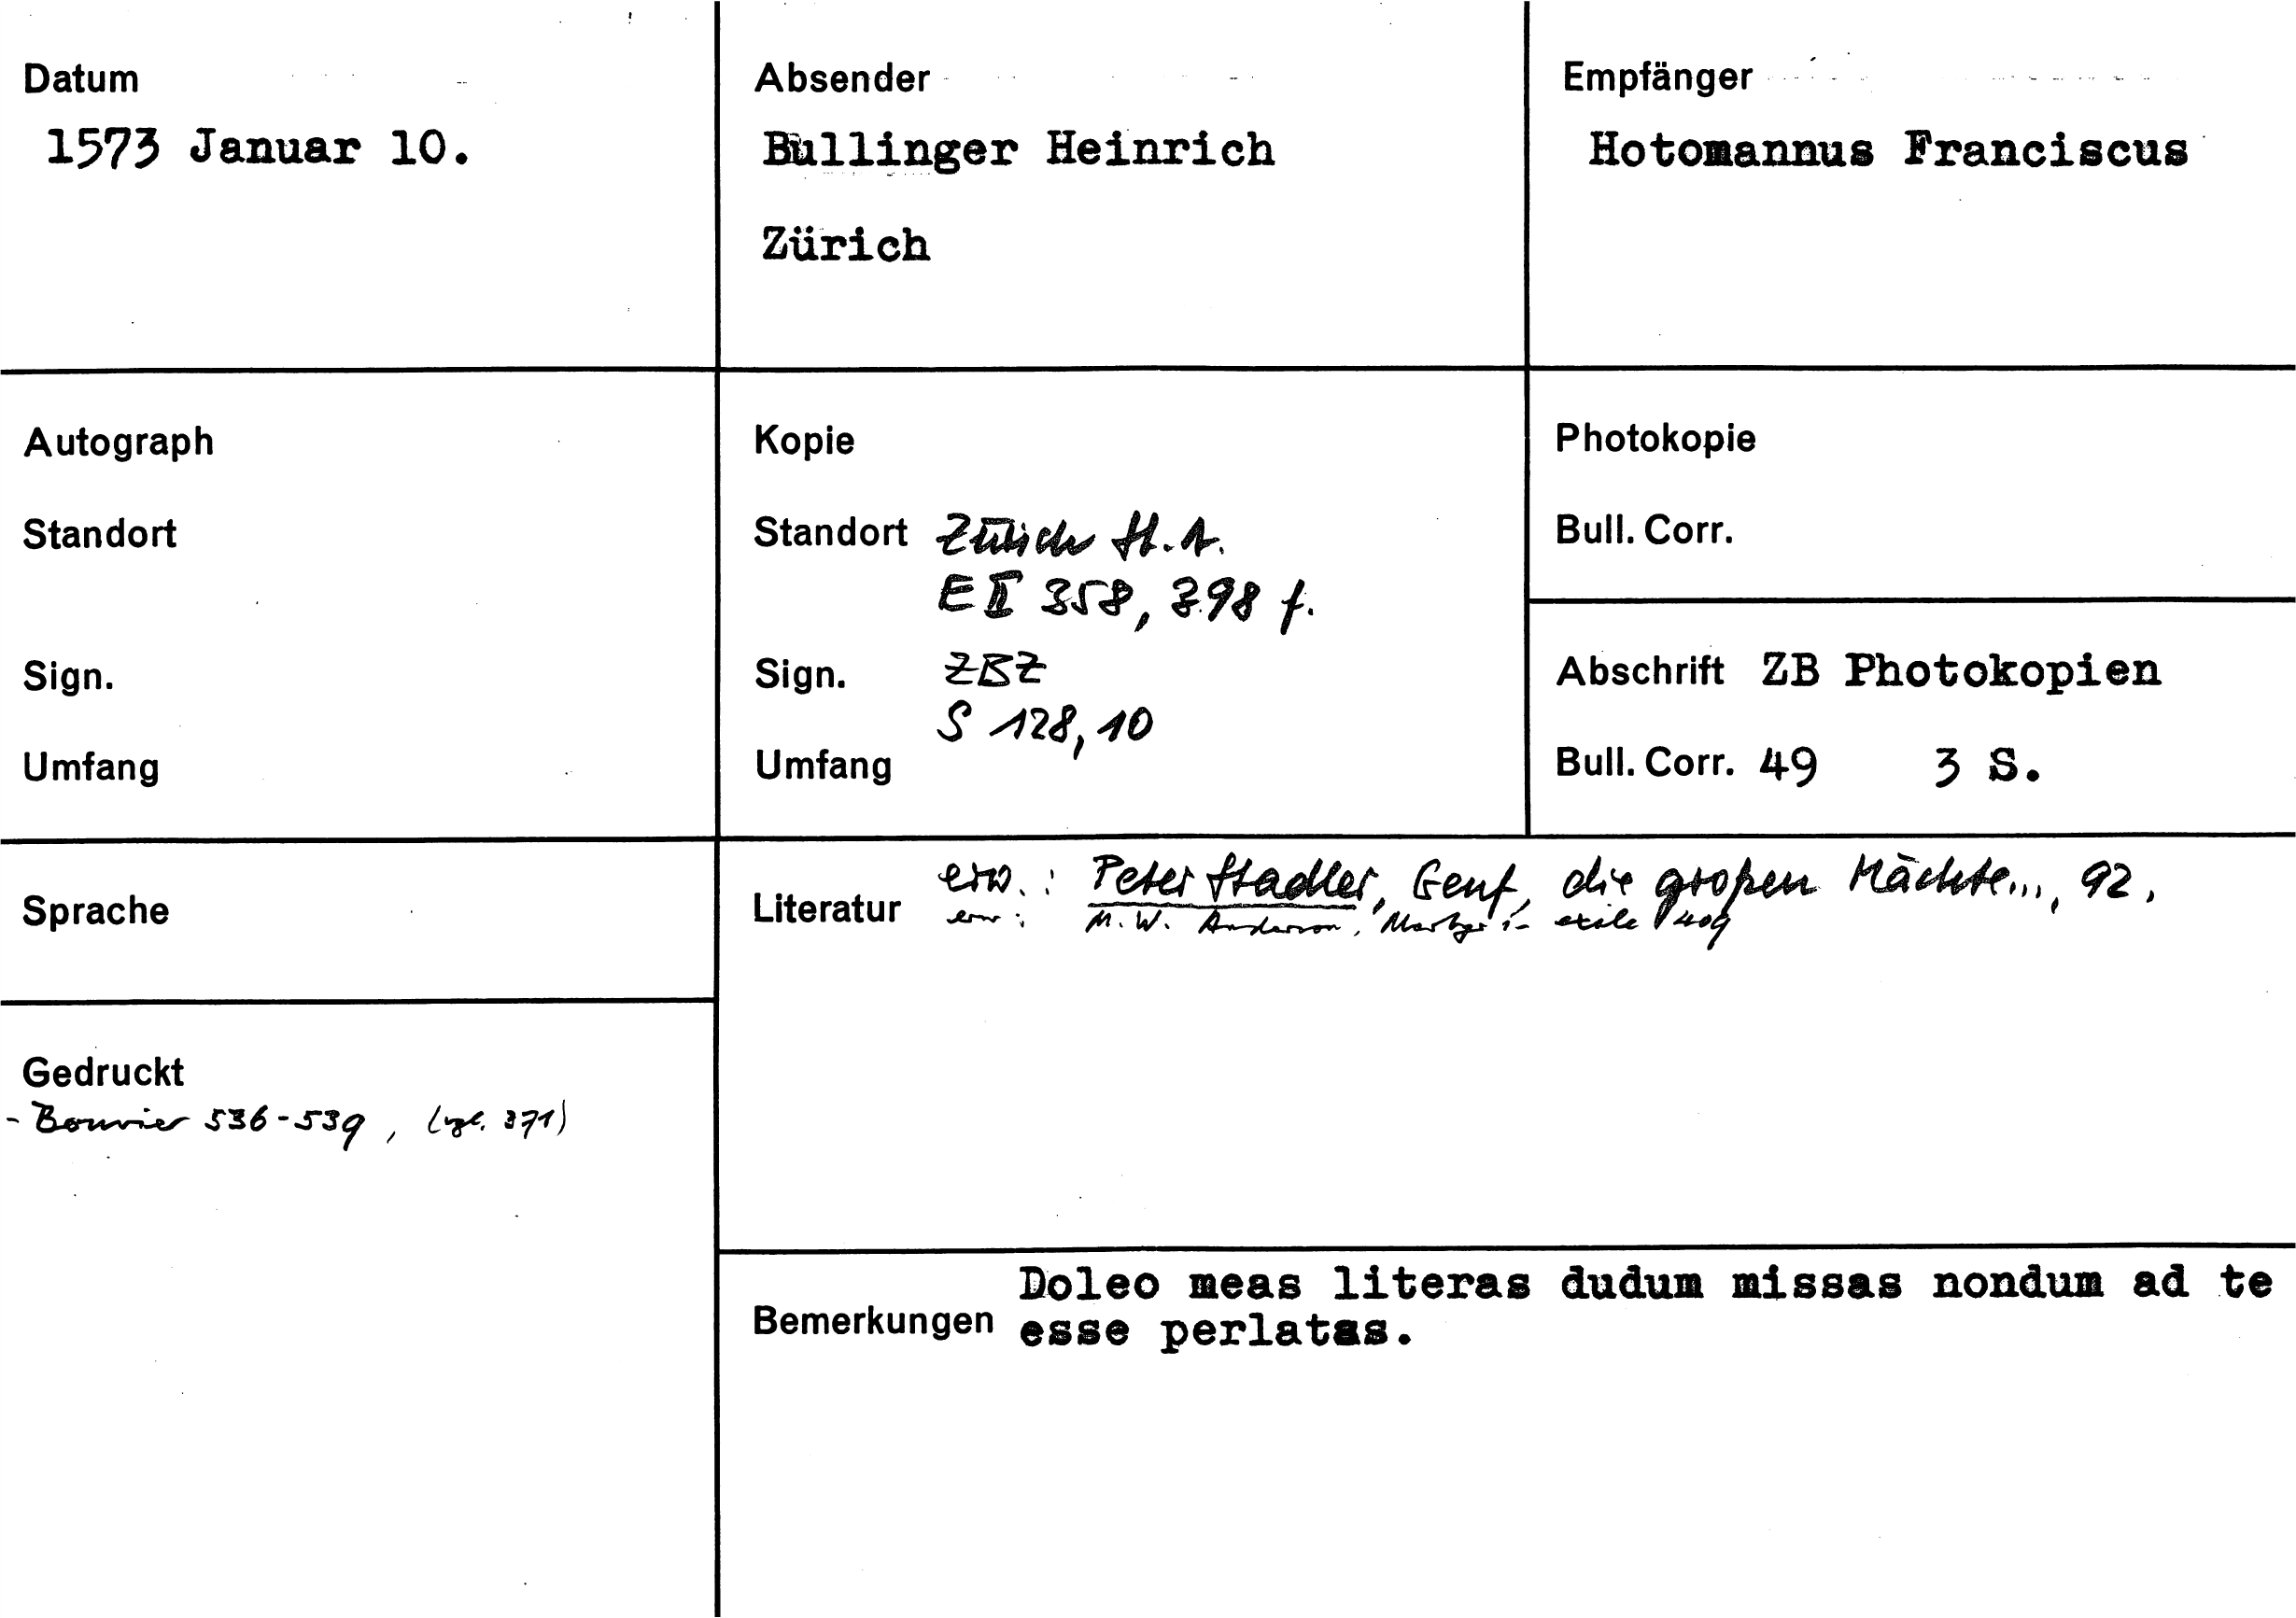 Datum
1573 Januar 10.
Absender
Bullinger Heinrich
Zürich
Empfänger
Hotomannus Franciscus
Autograph
Standort
Sign.
Umfang
Kopie
Standort Zürich St.A.
E II 358, 398 f.
Sign. ZBZ
S 128,10
Umfang
Photokopie
Bull. Corr.
Abschrift ZB Photokopien
Bull. Corr. 49 3 S.
Sprache
Gedruckt
- Bouvier 536-539, (vgl. 371)
Literatur erw.: Peter Stadler, Genf, die großen Mächte..., 92,
erw: M. W. Anderson, Martyr in exile 409
Bemerkungen Doleo meas literas dudum missas nondum ad te
esse perlatas.